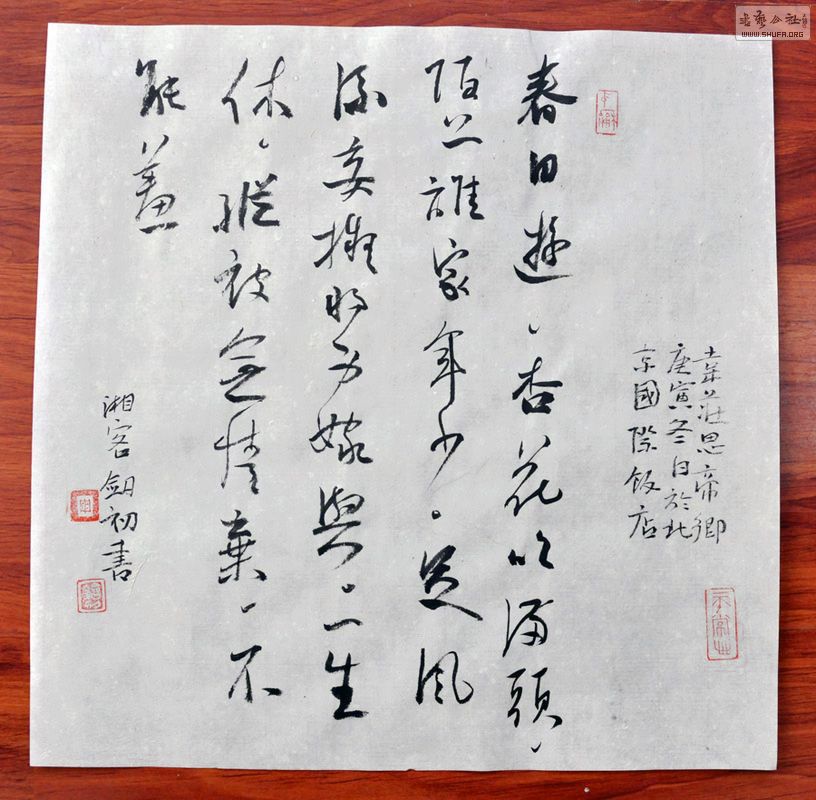 韋莊思帝鄉
庚寅冬日於北
京國際飯店
春日遊、杏花吹滿頭、
陌上誰家年少、足風
流妾擬將身嫁與、一生
休、縱被無情棄、不
能羞
湘客劍初書
WWW.SHUFA.ORG